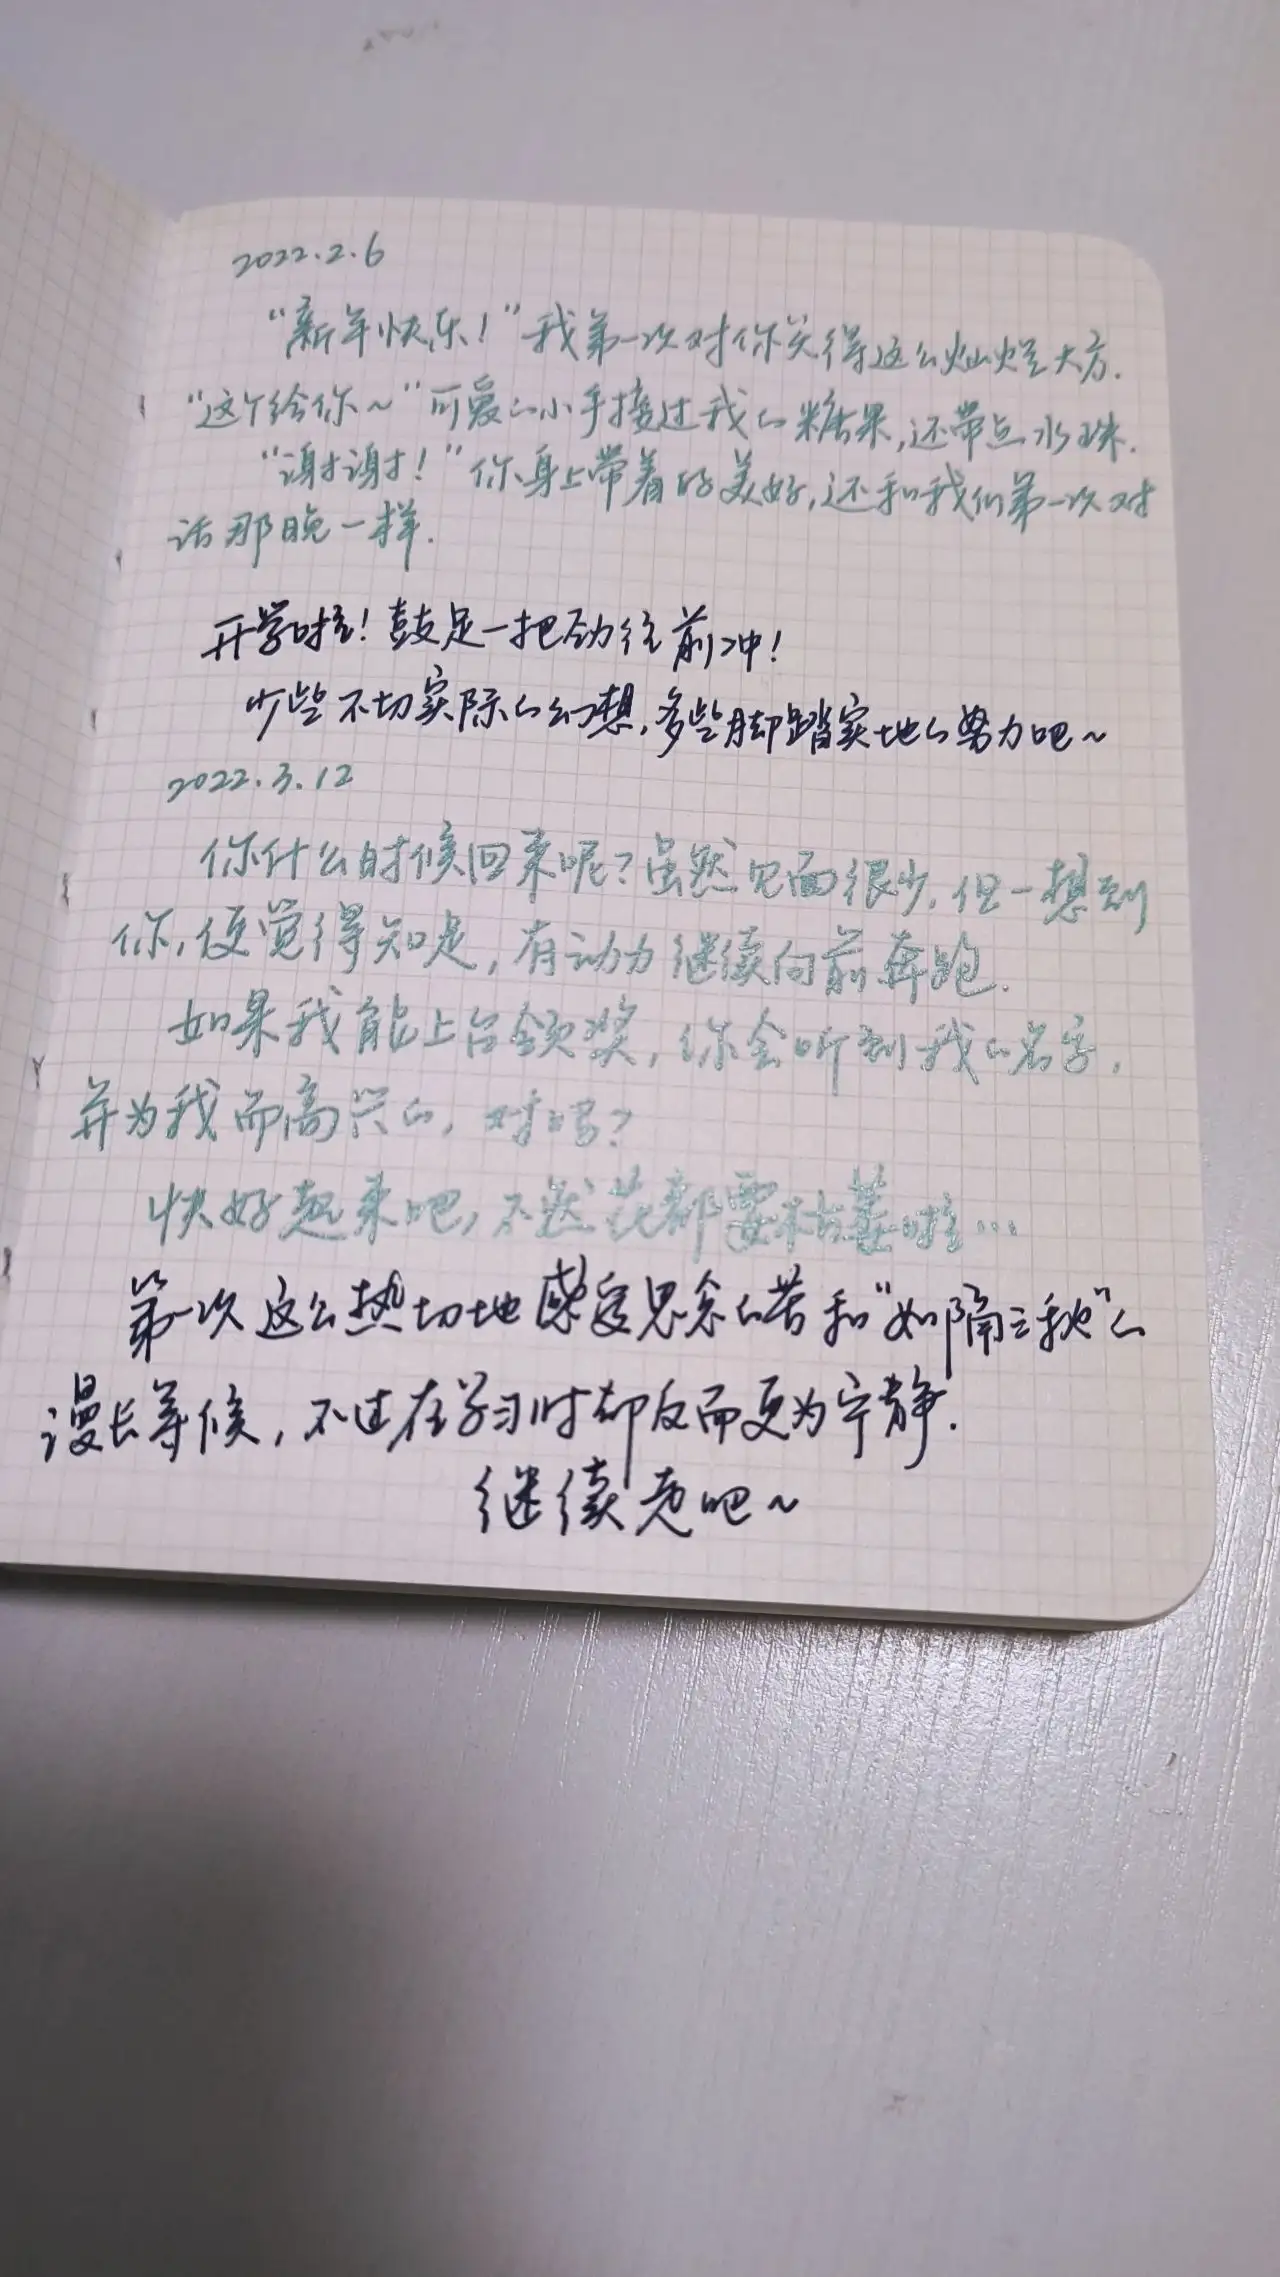 2022.2.6
“新年快乐！”我第一次对你笑得这么灿烂大方.
“这个给你～”可爱的小手接过我的糖果,还带点水珠.
“谢谢！”你身上带着的美好,还和我们第一次对
话那晚一样.
开学啦！鼓足一把劲往前冲！
少些不切实际的幻想,多些脚踏实地的努力吧～
2022.3.12
你什么时候回来呢？虽然见面很少,但一想到
你,便觉得知足,有动力继续向前奔跑.
如果我能上台领奖,你会听到我的名字,
并为我而高兴的,对吗？
快好起来吧,不然花都要枯萎啦…
第一次这么热切地感受思念的苦和“如隔三秋”的
漫长等候,不过在学习时却反而更为宁静.
继续走吧～